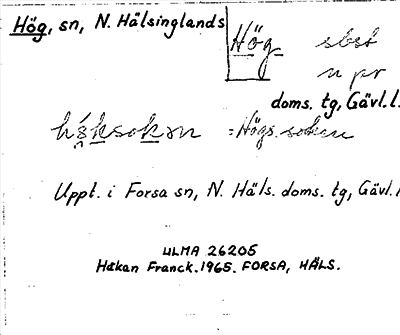 Hög, sn, N. Hälsinglands
doms. tg, Gävl. l.
Hög sbst
n pr
= Högs. soknen
Uppt. i Forsa sn, N. Häls. doms. tg, Gävl. l
ULMA 26205
Håkan Franck. 1965. FORSA, HÄLS.